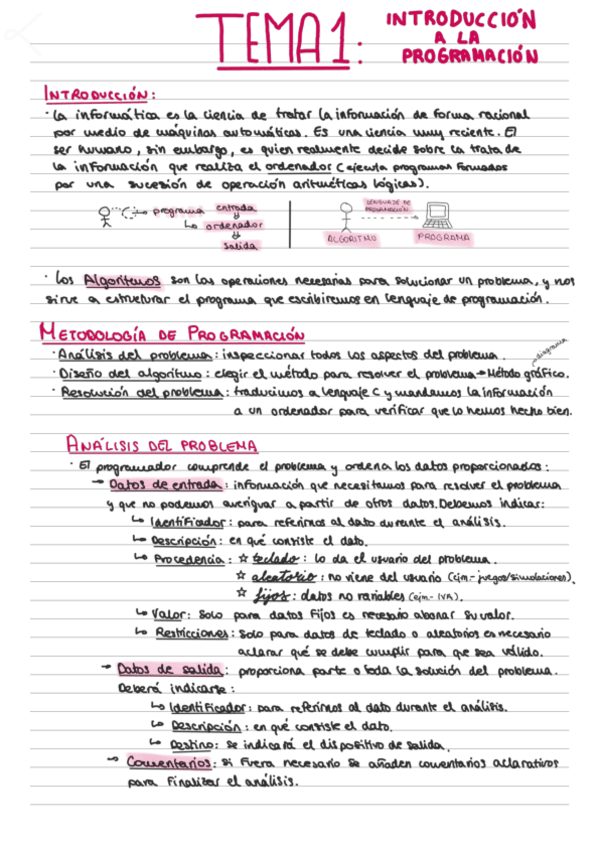 TEMA 1:
INTRODUCCIÓN
A LA
PROGRAMACIÓN
INTRODUCCIÓN:
· La informática es la ciencia de tratar la información de forma racional
por medio de máquinas automáticas. Es una ciencia muy reciente. El
ser humano, sin embargo, es quien realmente decide sobre la trata de
la información que realiza el ordenador (ejecuta programas formados
por una sucesión de operación aritméticas lógicas).
programa entrada
ordenador
salida
LENGUAJE DE
PROGRAMACIÓN
ALGORITMO PROGRAMA
· Los Algoritmos son las operaciones necesarias para solucionar un problema, y nos
sirve a estructurar el programa que escribiremos en lenguaje de programación.
METODOLOGÍA DE PROGRAMACIÓN
· Análisis del problema: inspeccionar todos los aspectos del problema.
diagrama
· Diseño del algoritmo: elegir el método para resolver el problema → Método gráfico.
· Resolución del problema: traducimos a lenguaje C y mandamos la información
a un ordenador para verificar que lo hemos hecho bien.
ANÁLISIS DEL PROBLEMA
· El programador comprende el problema y ordena los datos proporcionados:
→ Datos de entrada: información que necesitamos para resolver el problema
y que no podemos averiguar a partir de otros datos. Debemos indicar:
↳ Identificador: para referirnos al dato durante el análisis.
↳ Descripción: en qué consiste el dato.
↳ Procedencia: ☆ teclado: lo da el usuario del problema.
☆ aleatorio: no viene del usuario (ejm- juegos/simulaciones).
☆ fijos: datos no variables (ejm- IVA).
↳ Valor: Solo para datos Fijos es necesario abonar su valor.
↳ Restricciones: Solo para datos de teclado o aleatorios es necesario
aclarar qué se debe cumplir para que sea válido.
→ Datos de salida: proporciona parte o toda la solución del problema.
Deberá indicarse:
↳ Identificador: para referirnos al dato durante el análisis.
↳ Descripción: en qué consiste el dato.
↳ Destino: se indicará el dispositivo de salida.
→ Comentarios: si fuera necesario se añaden comentarios aclarativos
para finalizar el análisis.